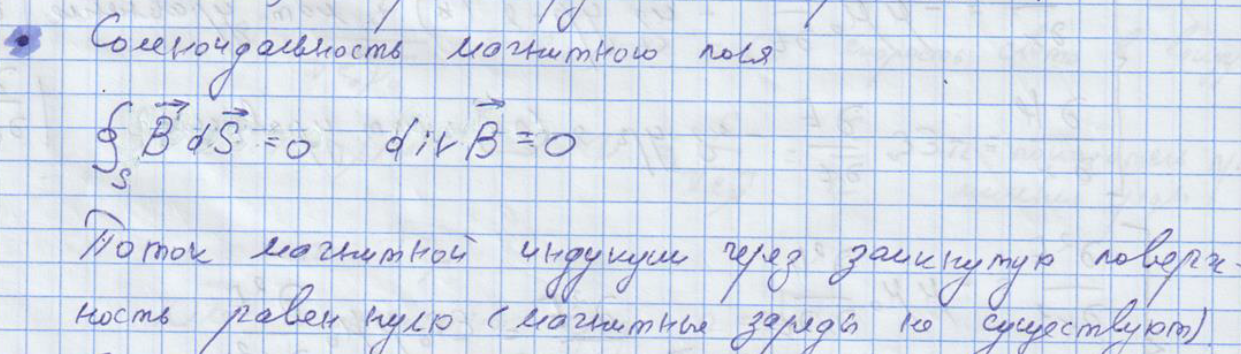 Соленоидальность магнитного поля
∮_S B⃗ dS⃗ = 0   div B⃗ = 0
Поток магнитной индукции через замкнутую поверх-
ность равен нулю (магнитные заряды не существуют)